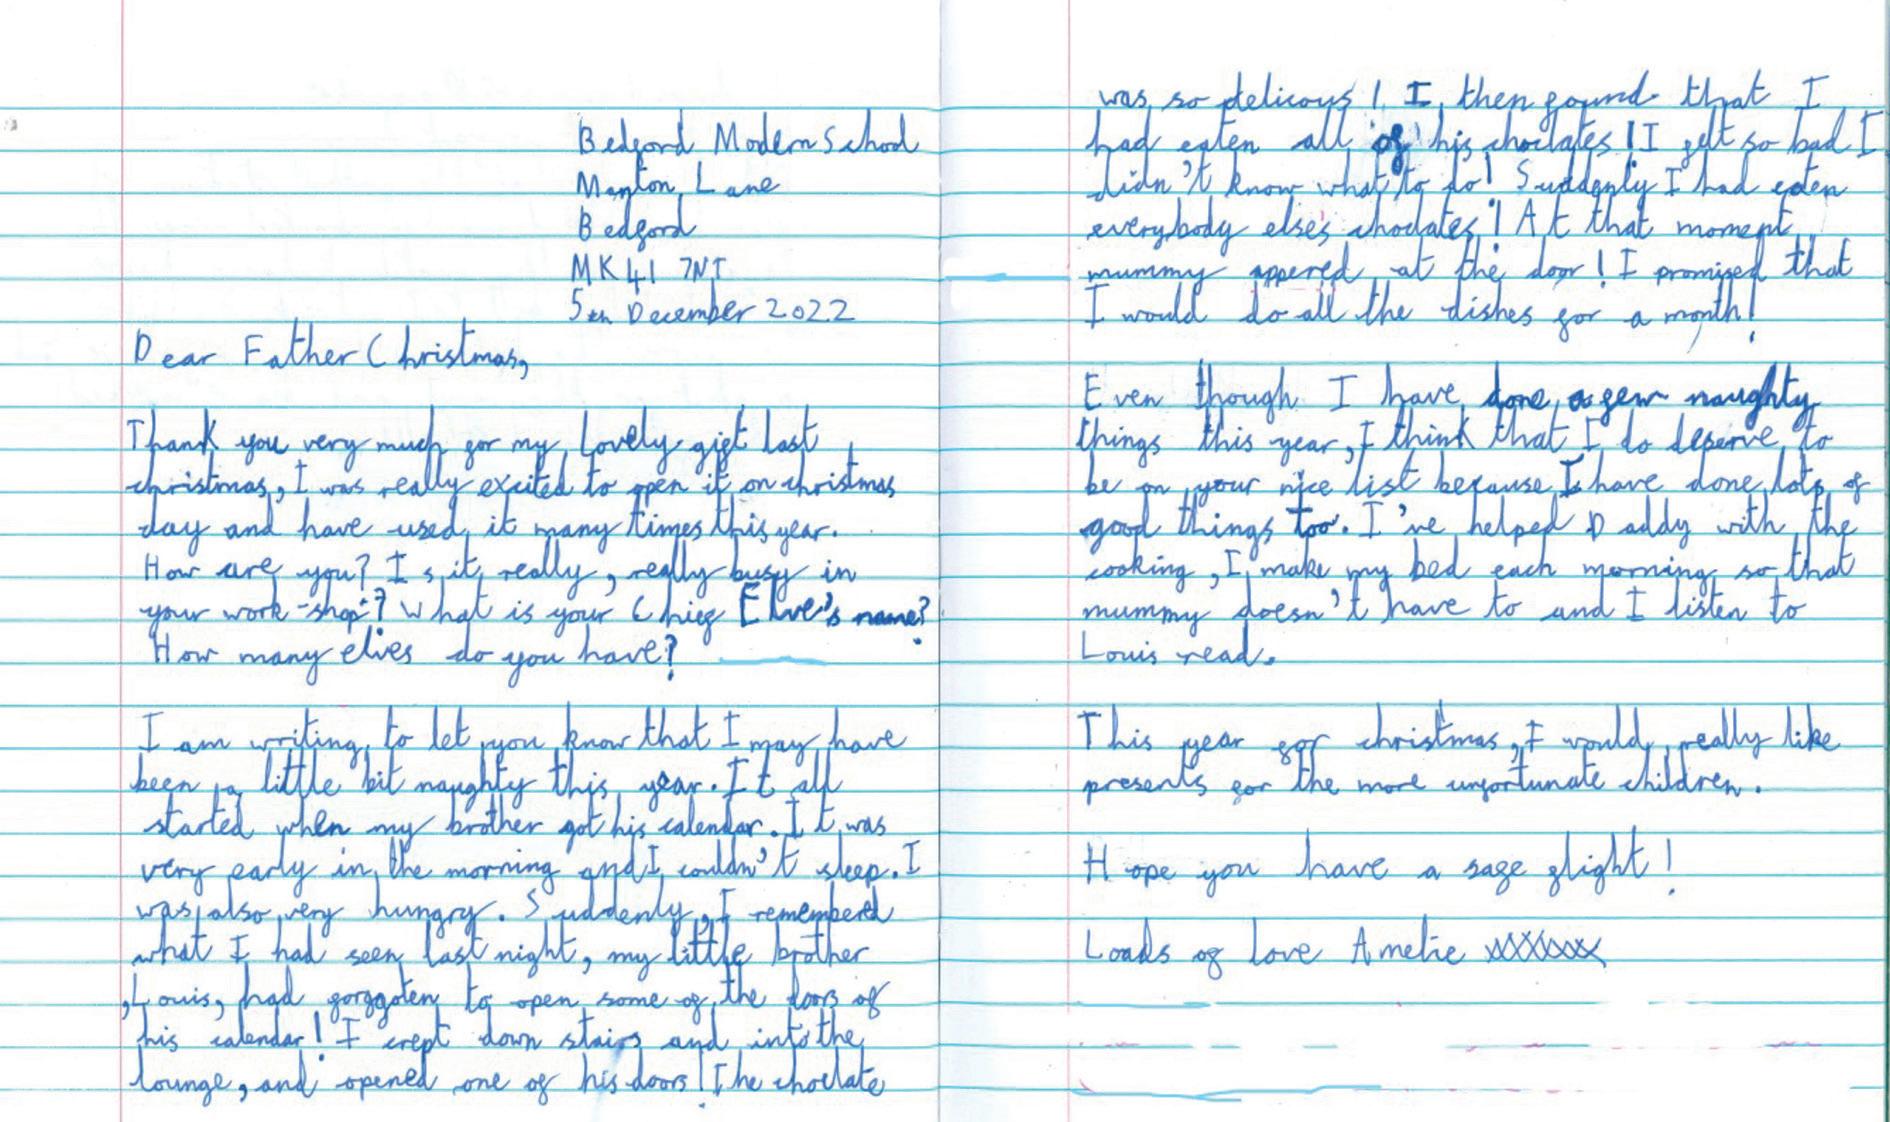 Bedford Modern School
Manton Lane
Bedford
MK41 7NT
5th December 2022
Dear Father Christmas,
Thank you very much for my Lovely gift last
christmas, I was really excited to open it on christmas
day and have used it many times this year.
How are you? Is it really, really busy in
your work-shop? What is your Chief Elve's name?
How many elves do you have?
I am writing to let you know that I may have
been a little bit naughty this year. It all
started when my brother got his calendar. It was
very early in the morning and I couldn't sleep. I
was also very hungry. Suddenly, I remembered
what I had seen last night, my little brother
,Louis, had forggoten to open some of the doors of
his calendar! I crept down stairs and into the
lounge, and opened one of his doors! The choclate
was so delicous! I then found that I
had eaten all of his choclates! I felt so bad I
didn't know what to do! Suddenly I had eaten
everybody else's choclates! At that moment
mummy appered at the door! I promised that
I would do all the dishes for a month!
Even though I have done a few naughty
things this year, I think that I do deserve to
be on your nice list because I have done lots of
good things too. I've helped Daddy with the
cooking, I make my bed each morning so that
mummy doesn't have to and I listen to
Louis read.
This year for christmas, I would really like
presents for the more unfortunate children.
Hope you have a safe flight!
Loads of love Amelie xxxxxxx